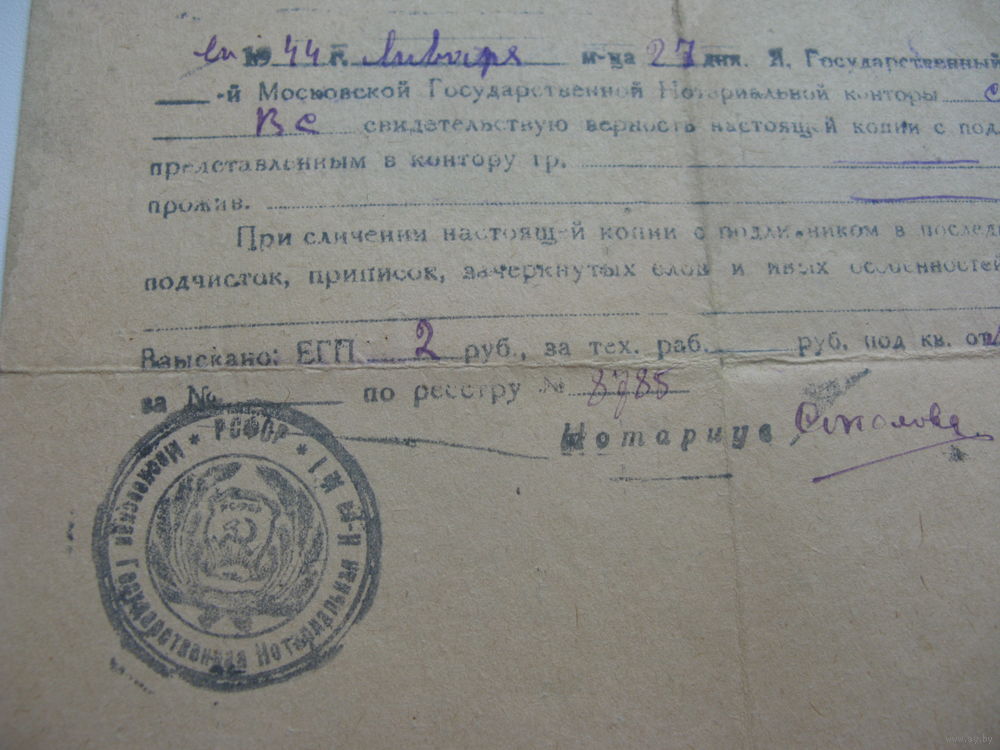 1944 г. Января м-ца 27 дня. Я, Государственный
-й Московской Государственной Нотариальной конторы
свидетельствую верность настоящей копии с под
представленным в контору гр.
прожив.
При сличении настоящей копии с подлинником в послед
подчисток, приписок, зачеркнутых слов и иных особенностей
Взыскано: ЕГП 2 руб., за тех. раб. руб. под кв.
за № по реестру № 8785
Нотариус Соколова
* РСФСР *
Московская Государственная Нотариальная
РСФСР
www.ay.by